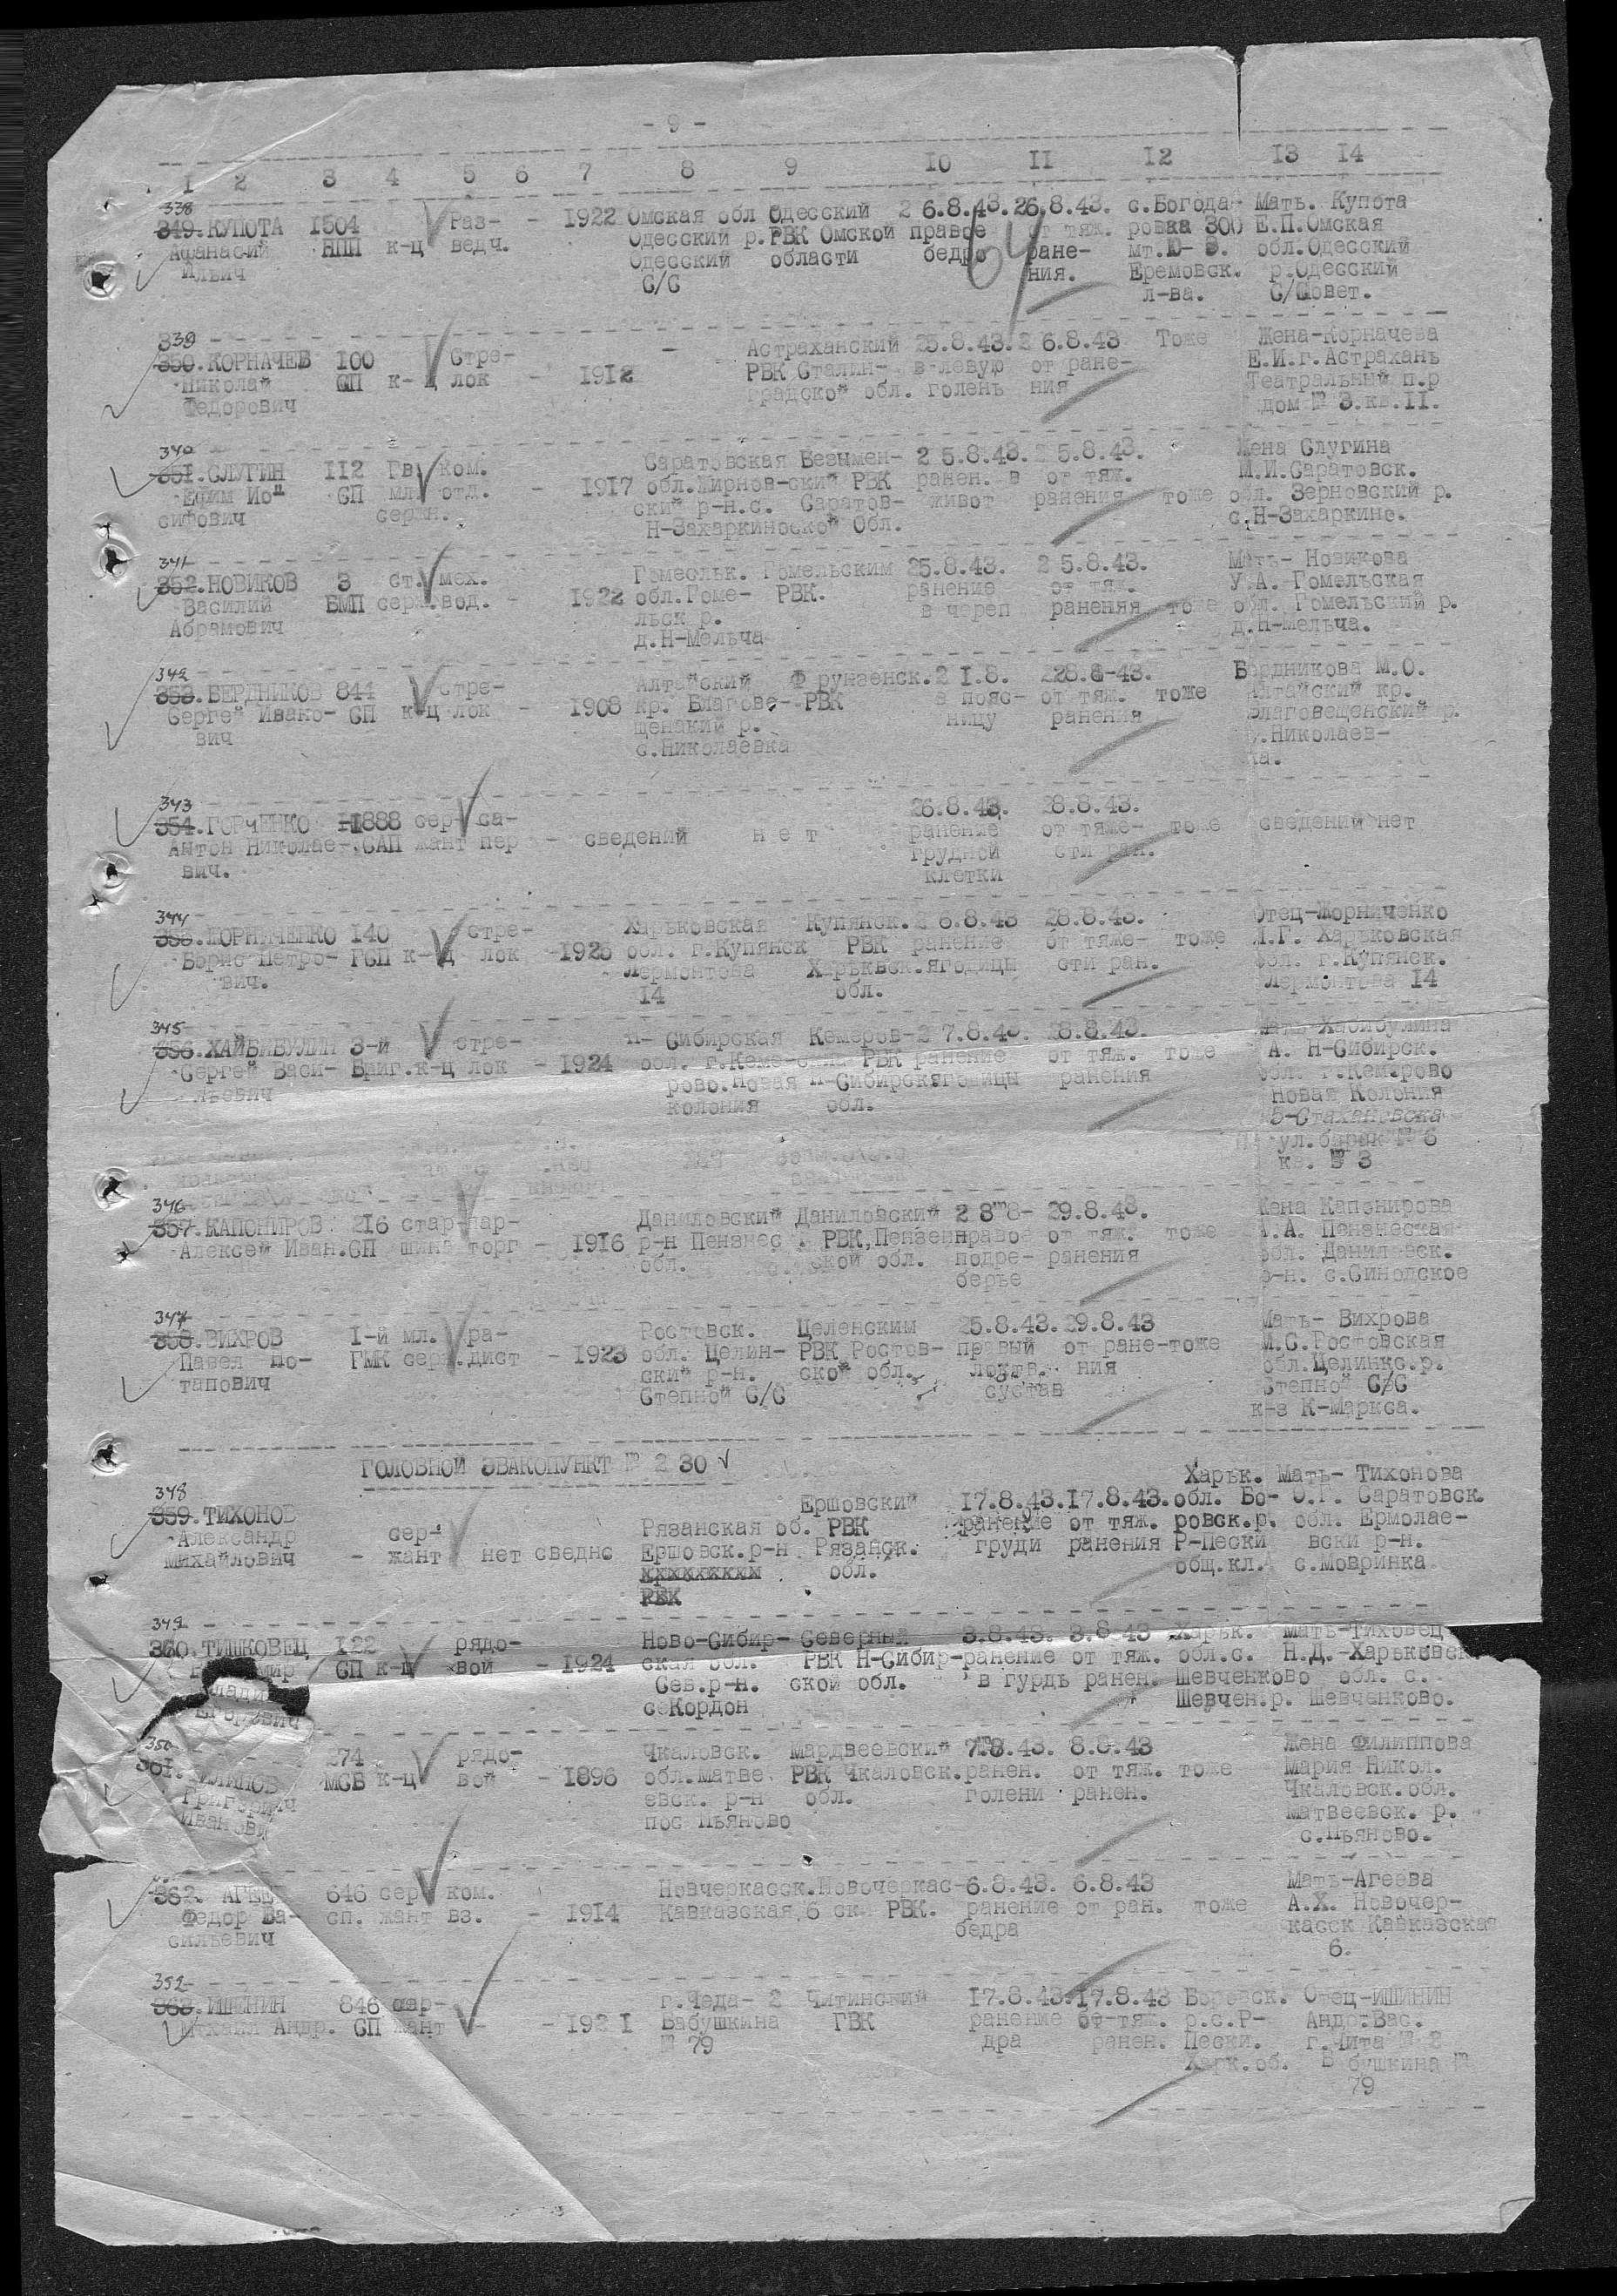 - 9 -
1 2 3 4 5 6 7 8 9 10 11 12 13 14
338
349.КУПОТА 1504 Раз- - 1922 Омская обл Одесский 2 6.8.43.26.8.43. с.Богода- Мать. Купота
Афанасий НПП к-ц ведч. Одесский р.РВК Омской правое от тяж. ровка 300 Е.П.Омская
Ильич Одесский области бедро ране- мт.Ю- В. обл.Одесский
С/С ния. Еремовск. р.Одесский
л-ва. С/Шовет.
64
339
350.КОРНАЧЕВ 100 Стре- - Астраханский 25.8.43.2 6.8.43 Тоже Жена-Корначева
Николай СП к-ц лок - 1912 РВК Сталин- в левую от ране- Е.И.г.Астрахань
Федорович градской обл. голень ния Театральный п.р
дом № 3.кв.11.
340
351.СЛУГИН 112 Гв. Ком. Саратовская Безымен- 2 5.8.43. 2 5.8.43. Жена Слугина
Ефим Ио- СП мл. отд. - 1917 обл.Жирнов-ский РВК ранен. в от тяж. М.И.Саратовск.
сифович серж. ский р-н.с. Саратов- живот ранения тоже обл. Зерновский р.
Н-Захаркиноской Обл. с.Н-Захаркино.
341
352.НОВИКОВ 3 ст. мех. Гомеольк. Гомельским 25.8.43. 2 5.8.43. Мать- Новикова
Василий БМП серж.вод. - 1922 обл.Гоме- РВК. ранение от тяж. У.А. Гомельская
Абрамович льск р. в череп ранения тоже обл. Гомельский р.
д.Н-Мельча д.Н-Мельча.
342
353.БЕРДНИКОВ 844 стре- Алтайский Фрунзенск.2 1.8. 228.8-43. Бердникова М.О.
Сергей Ивано- СП к-ц лок - 1908 кр. Благове- РВК в пояс- от тяж. тоже Алтайский кр.
вич щенкий р. ницу ранения Благовещенский р.
с.Николаевка с.Николаев-
ка.
343
354.ГОРЧЕНКО 1888 сер- са- 26.8.43. 28.8.43.
Антон Николае- САП жант пер - сведений н е т ранение от тяже- тоже сведений нет
вич. грудной сти ран.
клетки
344
355.ЖОРНИЧЕНКО 140 стре- Харьковская Купянск.2 6.8.43 28.8.43. Отец-Жорниченко
Борис Петро- ГСП к-ц лок -1925 обл. г.Купянск РВК ранение от тяже- тоже П.Г. Харьковская
вич. Лермонтова Харьквск.ягодицы сти ран. обл. г.Купянск.
14 обл. Лермонтова 14
345
356.ХАЙБИБУЛИН 3-й стре- Н- Сибирская Кемеров-2 7.8.43. 28.8.43. Хабибулина
Сергей Васи- Бриг.к-ц лок - 1924 обл. г.Кеме- РВК ранение от тяж. тоже А. Н-Сибирск.
льевич рово.Новая Н-Сибирскягодицы ранения обл. г.Кемерово
колония обл. Новая Колония
5-Стахановска
ул.барак № 6
кв. № 3
346
357.КАПОНИРОВ 216 стар- пар- Даниловский Даниловский 2 8 8- 29.8.43. Жена Капонирова
Алексей Иван.СП шина торг - 1916 р-н Пензнес . РВК,Пензенправое от тяж. тоже А.А. Пензнеская
обл. ской обл. подре- ранения обл. Даниловск.
берье р-н. с.Синодское
347
358.ВИХРОВ 1-й мл. ра- Ростовск. Целенским 25.8.43.29.8.43 Мать- Вихрова
Павел По- ГМК серж.дист - 1923 обл. Целин- РВК Ростов- правый от ране-тоже М.С.Ростовская
тапович ский р-н. ской обл. локтв. ния обл.Целинкс.р.
Степной С/С сустав Степной С/С
к-з К-Маркса.
ГОЛОВНОЙ ЭВАКОПУНКТ № 2 30
348 Харьк. Мать- Тихонова
359.ТИХОНОВ Ершовский 17.8.43.17.8.43.обл. Бо- О.Г. Саратовск.
Александр сер- Рязанская об. РВК ранение от тяж. ровск.р. обл. Ермолае-
Михайлович - жант нет сведнс Ершовск.р-н Рязанск. груди ранения Р-Пески вски р-н.
обл. общ.кл. с.Мовринка
РВК
349
360.ТИШКОВЕЦ 122 рядо- Ново-Сибир- Северный 3.8.43. 3.8.43 Харьк. Мать-Тиховец
СП к-ц вой - 1924 ская обл. РВК Н-Сибир-ранение от тяж. обл.с. Н.Д.-Харьковск
Сев.р-н. ской обл. в гурдь ранен. Шевченково обл. с.
Егорович с.Кордон Шевчен.р. Шевченково.
350
361. 274 рядо- Чкаловск. Мардвеевский 7 8.43. 8.8.43 Жена Филиппова
МСБ к-ц вой - 1896 обл.Матве РВК Чкаловск.ранен. от тяж. тоже Мария Никол.
Григорий евск. р-н обл. голени ранен. Чкаловск.обл.
Иванови пос Пьяново Матвеевск. р.
с.Пьяново.
362. АГЕЕ 646 сер- ком. Новчеркасск.Новочеркас-6.8.43. 6.8.43 Мать-Агеева
Федор Ва- сп. жант вз. - 1914 Кавказская,6 ски РВК. ранение от ран. тоже А.Х. Новочер-
сильевич бедра касск Кавказская
6.
352
363.ИШИНИН 846 сер- г.Чеда- 2 Читинский 17.8.43.17.8.43 Боровск. Отец-ИШИНИН
Михаил Андр. СП жант - - 1921 Бабушкина ГВК ранение от-тяж. р.с.Р- Андр.Вас.
№ 79 дра ранен. Пески. г.Чита № 2
Харк.об. Б бушкина №
79